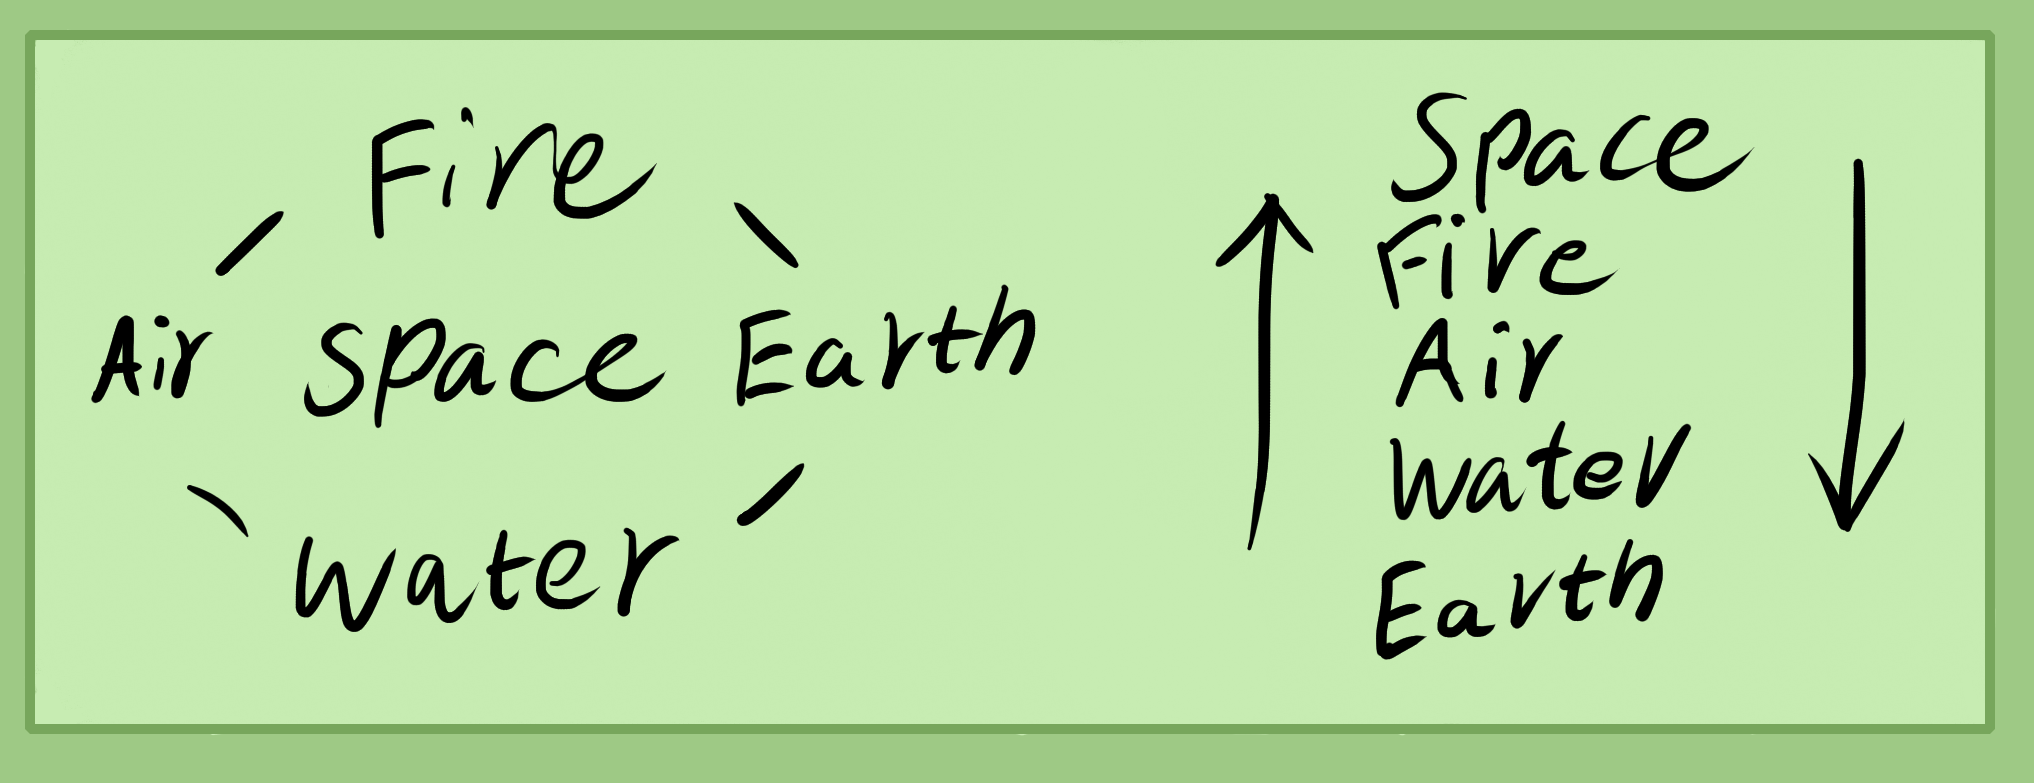 Fire
Air Space Earth
Water
Space
Fire
Air
Water
Earth